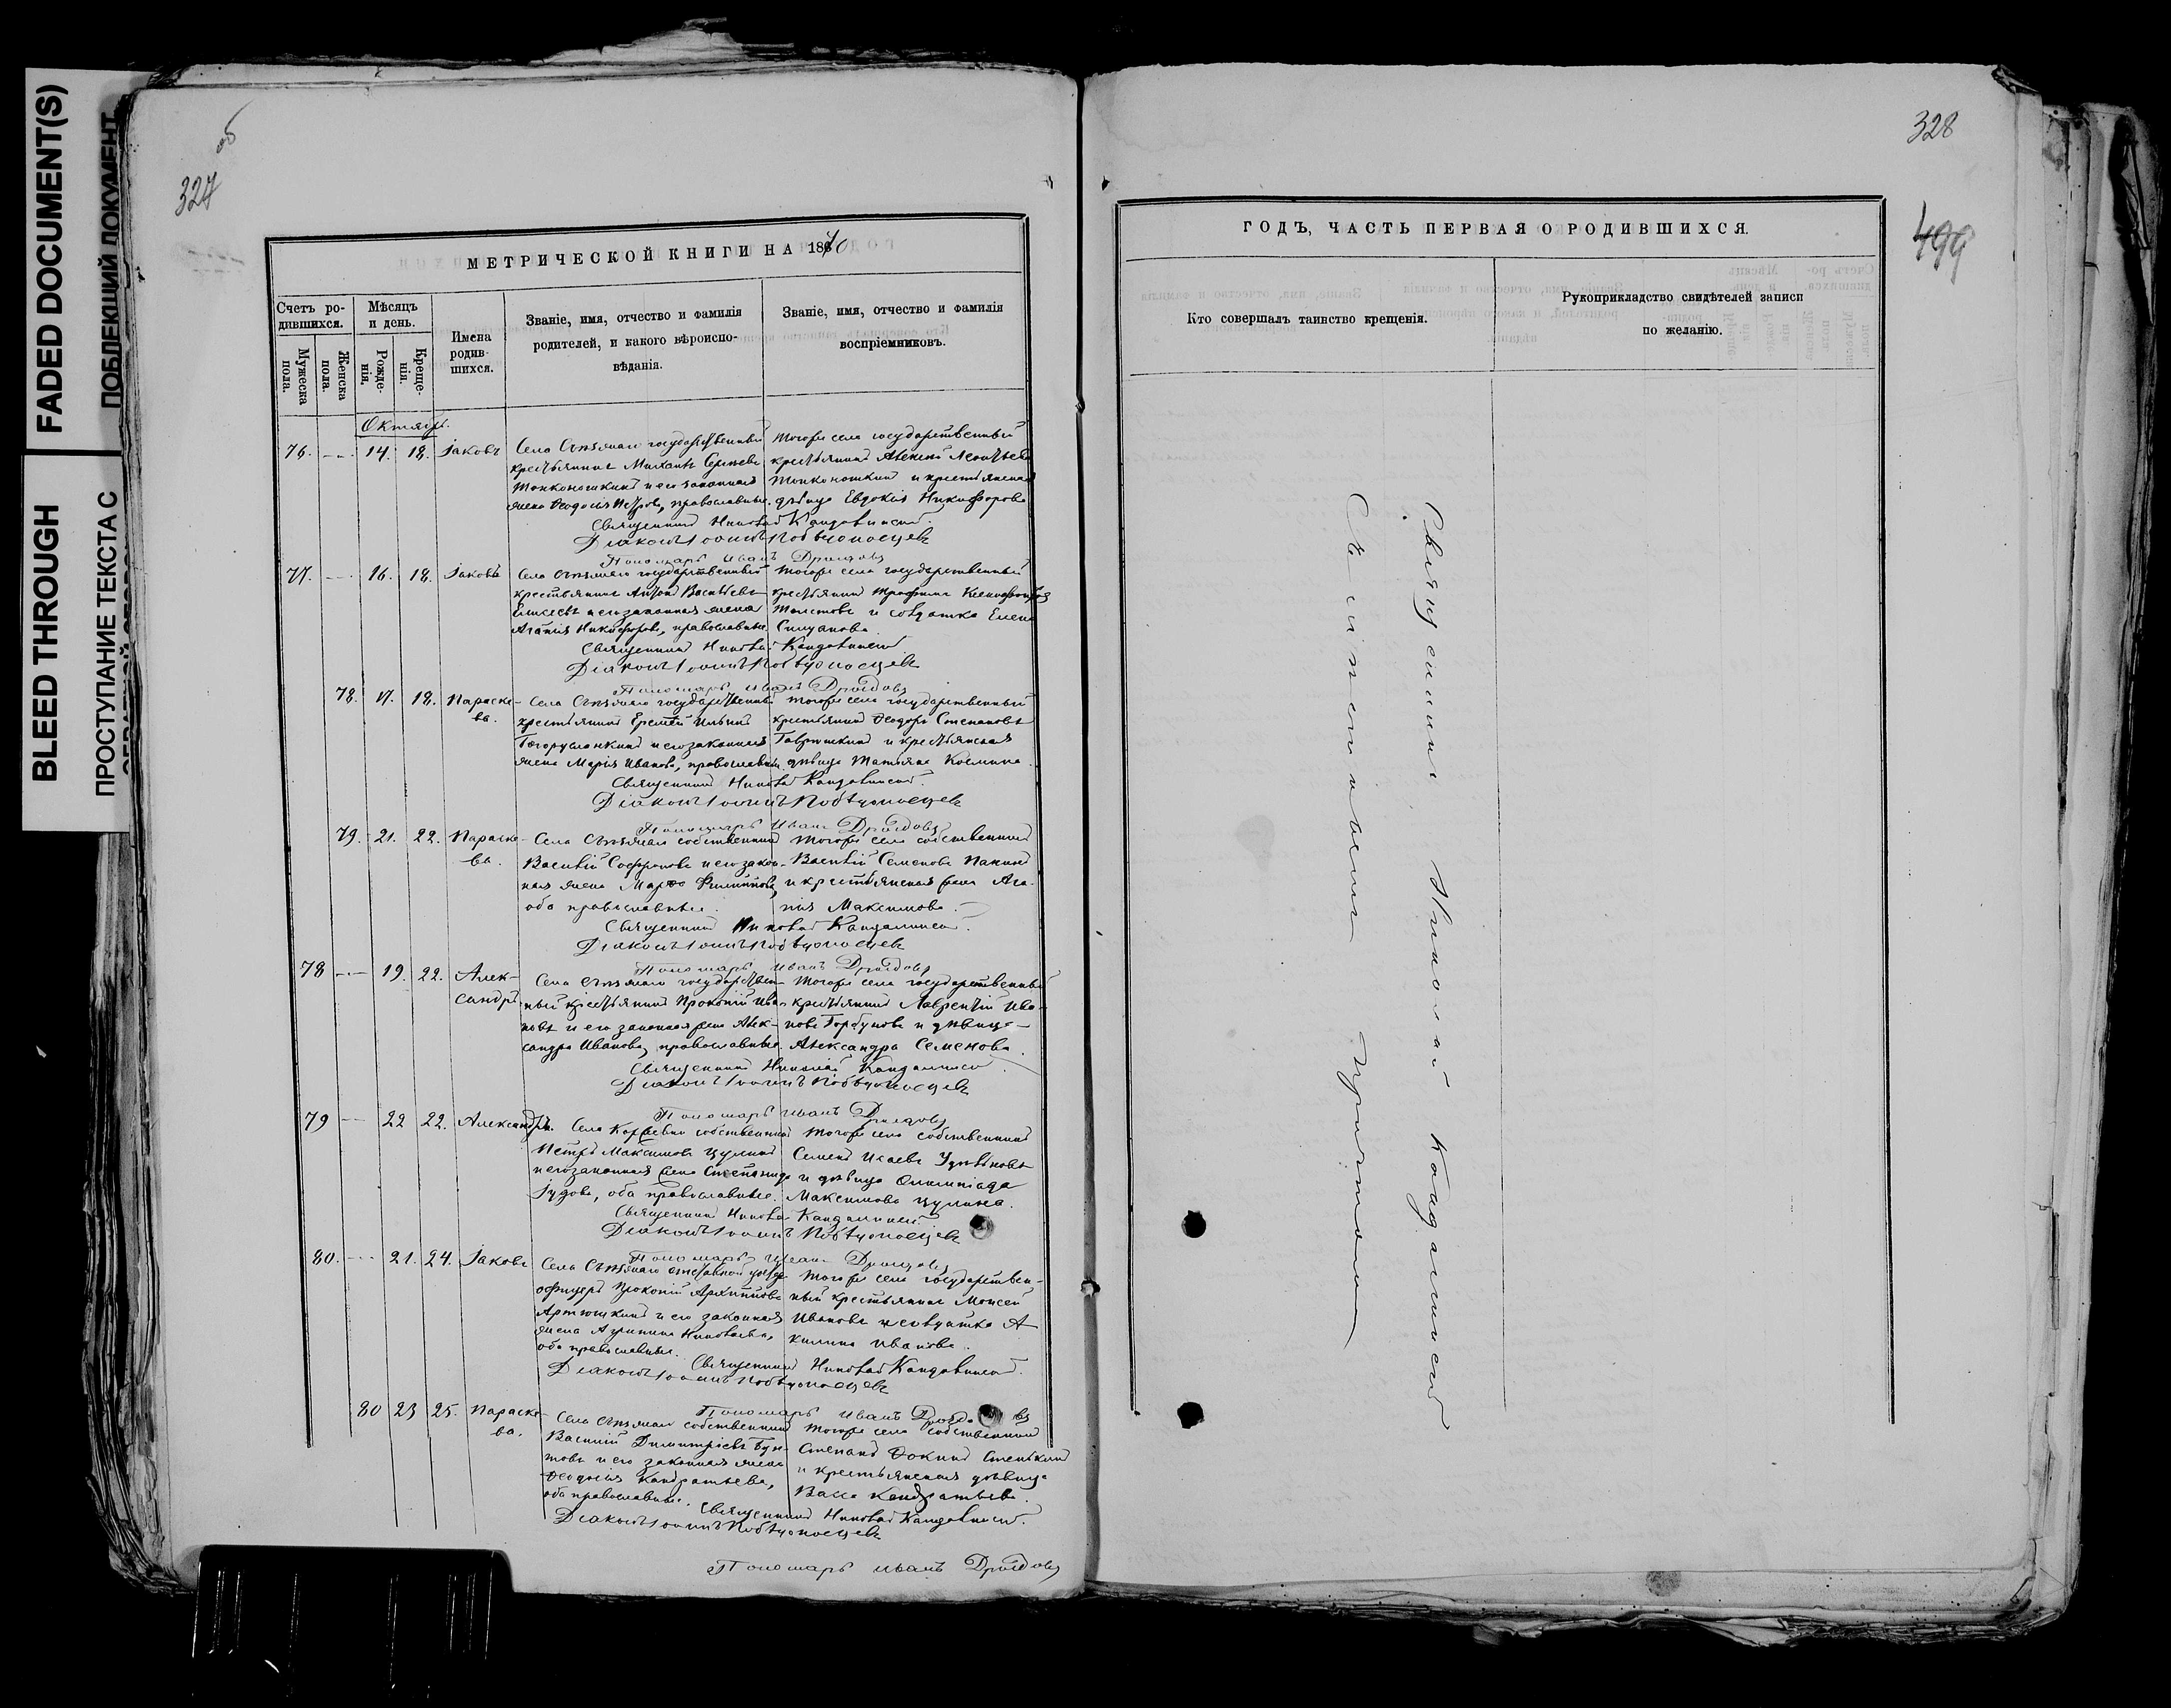 FADED DOCUMENT(S)
ПОБЛЕКШИЙ ДОКУМЕНТ
BLEED THROUGH
ПРОСТУПАНИЕ ТЕКСТА С
об
327
МЕТРИЧЕСКОЙ КНИГИ НА 1870
Счетъ ро-
дившихся.
Мужеска
пола.
Женска
пола.
Мѣсяцъ
и день.
Рожде-
нія.
Креще-
нія.
Имена
родив-
шихся.
Званіе, имя, отчество и фамилія
родителей, и какого вѣроиспо-
вѣданія.
Званіе, имя, отчество и фамилія
воспріемниковъ.
Октябрь.
76. 14. 18. Іаковъ
Села государственный
крестьянинъ Михаилъ
и его законная
жена Ѳеодосія Петрова, православные.
Тогоже села государственный
крестьянинъ Алексей Леонтьевъ
и крестьянская
дѣвица Евдокія Никифорова
Священникъ Николай
Діаконъ Іоаннъ Побѣдоносцевъ
Пономарь Иванъ Дроздовъ
77. 16. 18. Іаковъ
Села государственный
крестьянинъ Антонъ Васильевъ
и его законная жена
Агапія Никифорова, православные.
Тогоже села государственный
крестьянинъ Трофимъ Ксенофонтовъ
Толстовъ и солдатка Елена
Силуанова.
Священникъ Николай
Діаконъ Іоаннъ Побѣдоносцевъ
Пономарь Иванъ Дроздовъ
78. 17. 18. Параске-
ва.
Села государственный
крестьянинъ Еремей Ильинъ
и его законная
жена Марія Иванова, православные.
Тогоже села государственный
крестьянинъ Ѳеодоръ Степановъ
и крестьянская
дѣвица Татьяна Космина.
Священникъ Николай
Діаконъ Іоаннъ Побѣдоносцевъ
Пономарь Иванъ Дроздовъ
79. 21. 22. Параске-
ва.
Села собственникъ
Василій Софроновъ и его закон-
ная жена Марѳа Филиппова,
оба православные.
Тогоже села собственникъ
Василій Семеновъ Панинъ
и крестьянская жена Ага-
пія Максимова.
Священникъ Николай
Діаконъ Іоаннъ Побѣдоносцевъ
Пономарь Иванъ Дроздовъ
78 19. 22. Алек-
сандръ
Села государствен-
ный крестьянинъ Прокопій Ива-
новъ и его законная жена Алек-
сандра Иванова, православные.
Тогоже села государственный
крестьянинъ Лаврентій Ива-
новъ Горбуновъ и дѣвица
Александра Семенова.
Священникъ Николай
Діаконъ Іоаннъ Побѣдоносцевъ
Пономарь Иванъ Дроздовъ
79 22 22. Александръ.
Села собственникъ
Петръ Максимовъ Цулинъ
и его законная жена Степанида
Іудова, оба православные.
Тогоже села собственникъ
Семенъ Исаевъ
и дѣвица Олимпіада
Максимова Цулина.
Священникъ Николай
Діаконъ Іоаннъ Побѣдоносцевъ
Пономарь Иванъ Дроздовъ
80. 21. 24. Іаковъ
Села отставной унтеръ
офицеръ Прокопій Архиповъ
Артюшкинъ и его законная
жена Агрипина Николаева,
оба православные.
Тогоже села государствен-
ный крестьянинъ Моисей
Ивановъ и солдатка А-
килина Иванова.
Священникъ Николай
Діаконъ Іоаннъ Побѣдоносцевъ
Пономарь Иванъ Дроздовъ
80 23 25. Параске-
ва.
Села собственникъ
Василій Димитріевъ
и его законная жена
Ѳеодосія Кандратьева,
оба православные.
Тогоже села собственникъ
Степанъ Ѳокинъ Стенькинъ
и крестьянская дѣвица
Васса Кандратьева.
Священникъ Николай
Діаконъ Іоаннъ Побѣдоносцевъ
Пономарь Иванъ Дроздовъ
328
499
ГОДЪ, ЧАСТЬ ПЕРВАЯ О РОДИВШИХСЯ.
Кто совершалъ таинство крещенія.
Рукоприкладство свидѣтелей записи
по желанію.
Священникъ Николай
Съ причтомъ